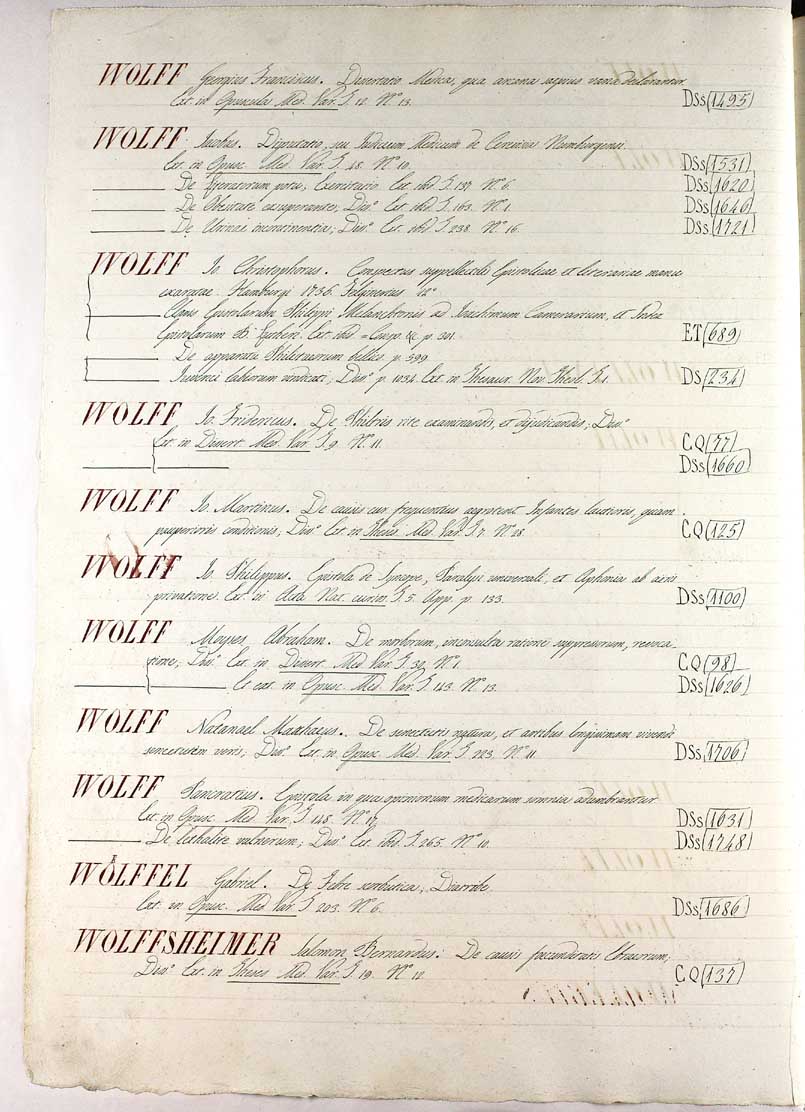 WOLFF Georgius Franciscus. Dissertatio Medica, qua arcana sæpius vana declarantur.
Ext. in Opuscula Med. Var. T. 12. Nº 13. DSs 1495
WOLFF Jacobus. Disputatio, seu Judicium Medicum de Cerevisia Numburgensi.
Ext. in Opusc. Med. Var. T. 48. Nº 10. DSs 1531
De potu, Exercitatio. Ext. ibid. T. 137. Nº 6. DSs 1620
De Obesitate exuperante; Dis.º Ext. ibid. T. 163. Nº 1. DSs 1646
De Urinæ incontinentia; Dis.º Ext. ibid. T. 238. Nº 16. DSs 1721
WOLFF Jo. Christophorus. Conspectus suppellectilis Epistolicæ et literariæ manu
exaratæ. Hamburgi 1736. 12º
Clavis Epistolarum Philippi Melanchtonis ad Joachimum Camerarium, et Index
Epistolarum Ext. ibid. = Consp. &c. p. 301. ET 689
De apparatu Philistæorum bellico. p. 599.
Juvenci laborum vindicati; Dis.º p. 1034. Ext. in Thesaur. Nov. Theol. T. 1. DS 234
WOLFF Jo. Fridericus. De Phthisis rite examinandis, et dijudicandis; Dis.º
Ext. in Dissert. Med. Var. T. 9. Nº 11. CQ 77
DSs 1660
WOLFF Jo. Martinus. De causis cur frequentius ægrotent Infantes lautioris, quam
pauperioris conditionis, Dis.º Ext. in Theses Med. Var. T. 7. Nº 28. CQ 125
WOLFF Jo. Philippus. Epistola de Syncope, Paralysi universali, et Aphonia ab aeris
privatione. Ext. in Acta Nat. curios. T. 5. App. p. 133. DSs 1100
WOLFF Moyses Abraham. De morborum, inconsulta ratione suppressorum, revoca-
tione; Dis.º Ext. in Dissert. Med. Var. T. 30. Nº 1. CQ 98
Ext. ear. in Opusc. Med. Var. T. 143. Nº 13. DSs 1626
WOLFF Natanael Matthæus. De senectutis natura, et artibus longissimam vivendi
senectutem veris; Dis.º Ext. in Opusc. Med. Var. T. 223. Nº 11. DSs 1706
WOLFF Pancratius. Epistola in qua opinionum medicarum somnia adumbrantur.
Ext. in Opusc. Med. Var. T. 148. Nº 17. DSs 1631
De lethalitate vulnerum; Dis.º Ext. ibid. T. 265. Nº 10. DSs 1748
WÖLFFEL Gabriel. De Febre scorbutica; Diatribe.
Ext. in Opusc. Med. Var. T. 203. Nº 6. DSs 1686
WOLFFSHEIMER Salomon Bernardus. De causis fœcunditatis Ebræorum;
Dis.º Ext. in Theses Med. Var. T. 19. Nº 12. CQ 137